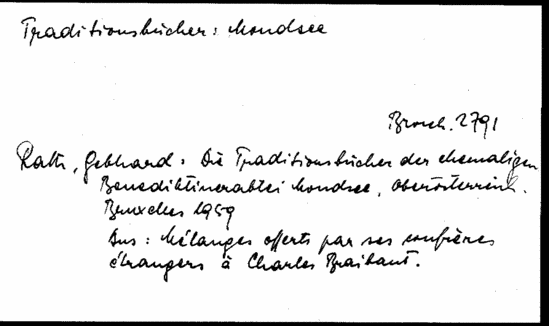 Traditionsbücher: Mondsee
Brosch. 2791
Rath, Gebhard: Die Traditionsbücher der ehemaligen
Benediktinerabtei Mondsee, Oberösterreich.
Bruxelles 1959
Aus: Mélanges offerts par ses confrères
étrangers à Charles Braibant.